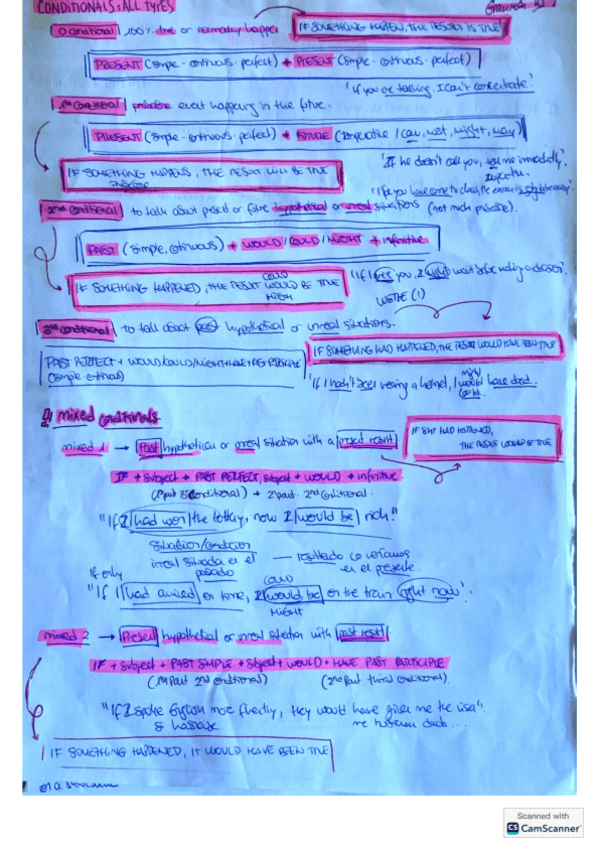 CONDITIONALS: ALL TYPES
0 conditional 100% true or normally happen
IF SOMETHING HAPPEN, THE RESULT IS TRUE
PRESENT (simple - continuous - perfect) + PRESENT (simple - continuous - perfect)
"If you are talking I can't concentrate"
1st conditional possible event happening in the future.
PRESENT (simple - continuous - perfect) + FUTURE (imperative / can, must, might, may)
"If he doesn't call you, tell me immediately".
IF SOMETHING HAPPENS, THE RESULT WILL BE TRUE
2nd conditional to talk about present or future hypothetical or unreal situations (not much possible).
PAST (simple, continuous) + WOULD / COULD / MIGHT + infinitive
IF SOMETHING HAPPENED, THE RESULT WOULD BE TRUE
COULD
MIGHT
WERE (!)
3rd conditional to talk about past hypothetical or unreal situations.
IF SOMETHING HAD HAPPENED, THE RESULT WOULD HAVE BEEN TRUE
PAST PERFECT + WOULD/COULD/MIGHT HAVE + PAST PARTICIPLE
(simple - continuous)
"If I hadn't been wearing a helmet, I would have died.
might
could
mixed conditionals
mixed 1 → Past hypothetical or unreal situation with a present result
IF SMT HAD HAPPENED,
THE RESULT WOULD BE TRUE
IF + subject + PAST PERFECT, subject + WOULD + infinitive
(1st part 3rd conditional) + 2nd part 2nd conditional.
"If I had won the lottery, now I would be rich!"
situación/condición
irreal situada en el pasado
resultado lo veríamos
en el presente.
If only
COULD
"If I had arrived on time, I would be on the train right now".
MIGHT
mixed 2 → Present hypothetical or unreal situation with past result
IF + subject + PAST SIMPLE + subject + WOULD + HAVE PAST PARTICIPLE
(1st part 2nd conditional) (2nd part third conditional).
"If I spoke English more fluently, they would have given me the visa"
si hablase me hubieran dado ...
IF SOMETHING HAPPENED, IT WOULD HAVE BEEN TRUE
Scanned with
CS CamScanner